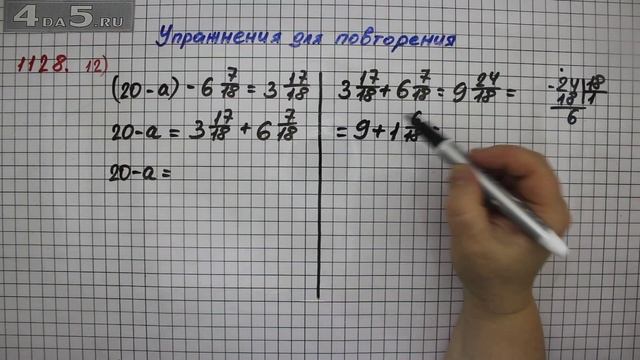 4DA5.RU
Упражнения для повторения
1128. 12)
(20-a) - 6 7/18 = 3 17/18
20-a = 3 17/18 + 6 7/18
20-a =
3 17/18 + 6 7/18 = 9 24/18 =
= 9 + 1 6/18 =
- 24 | 18
18 | 1
6